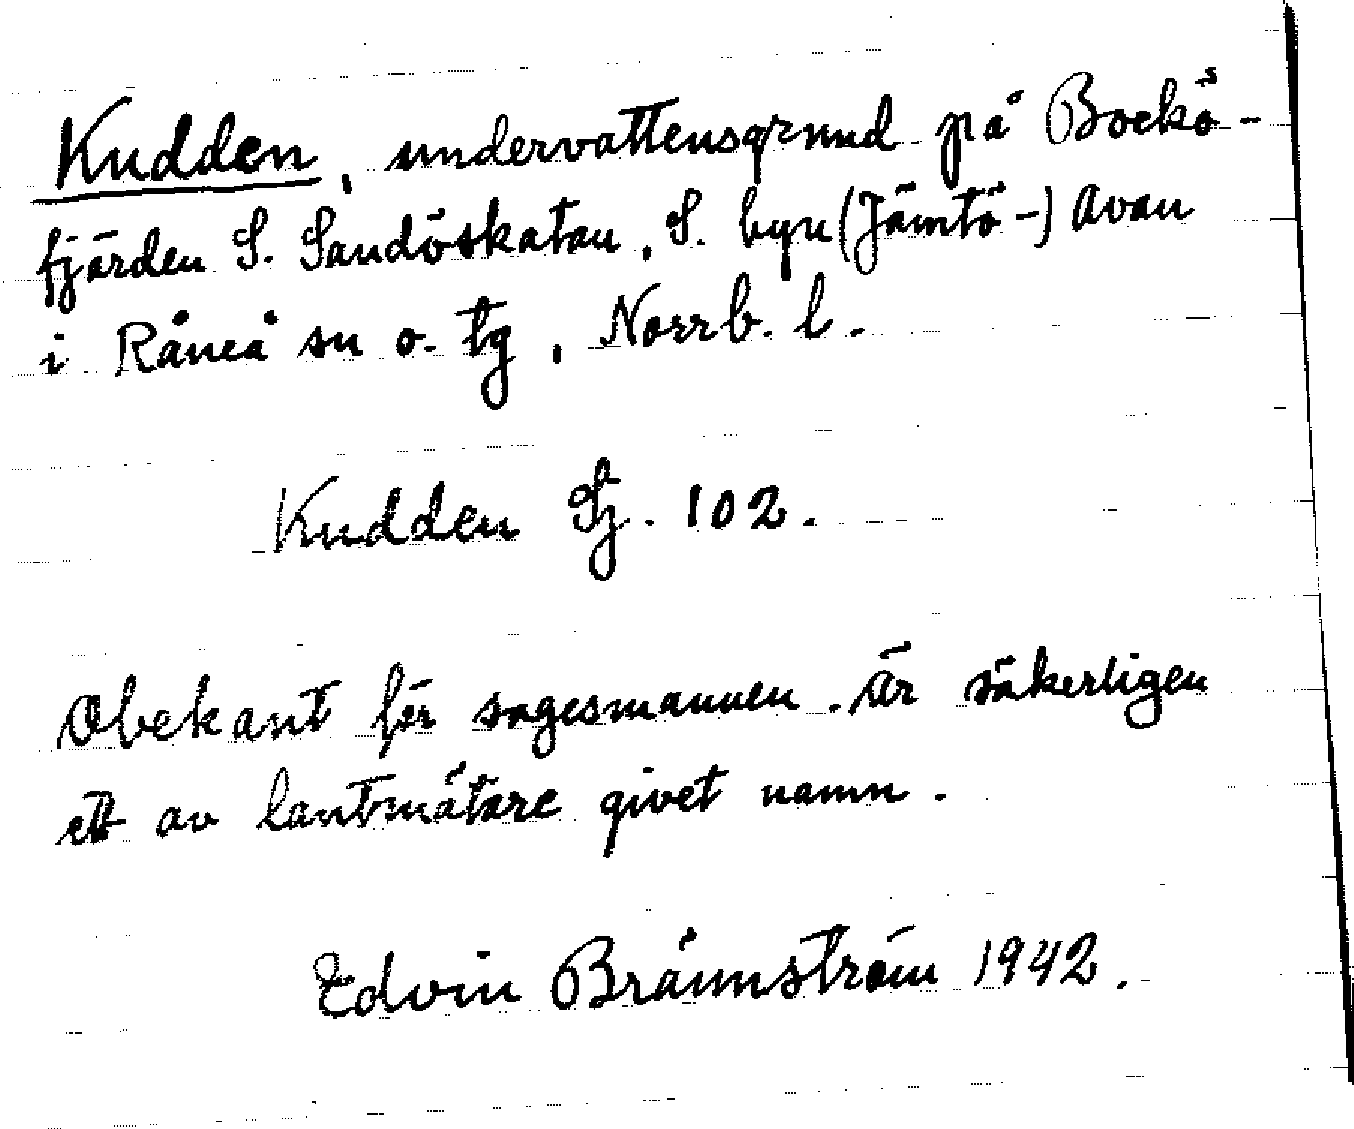 Kudden, undervattensgrund på Bockö-
fjärden S. Sandöskatan, S. byn (Jämtö-) Avan
i Råneå sn o. tg, Norrb. l.
Kudden Sj. 102.
Obekant för sagesmannen. Är säkerligen
ett av lantmätare givet namn.
Edvin Brännström 1942.